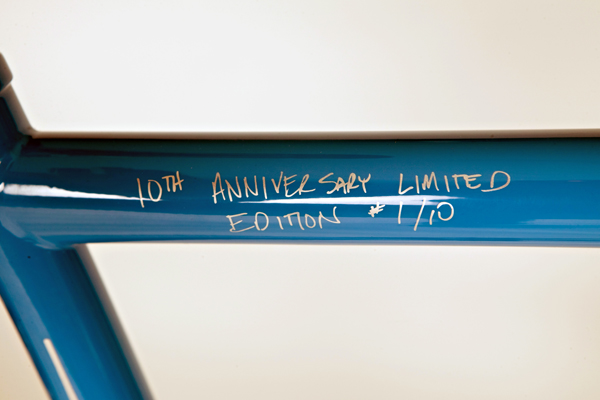 10TH ANNIVERSARY LIMITED
EDITION #1/10